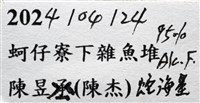 2024/04/24
95% Alc. F.
蚵仔寮下雜魚堆
陳昱丞(陳杰) 陀海星